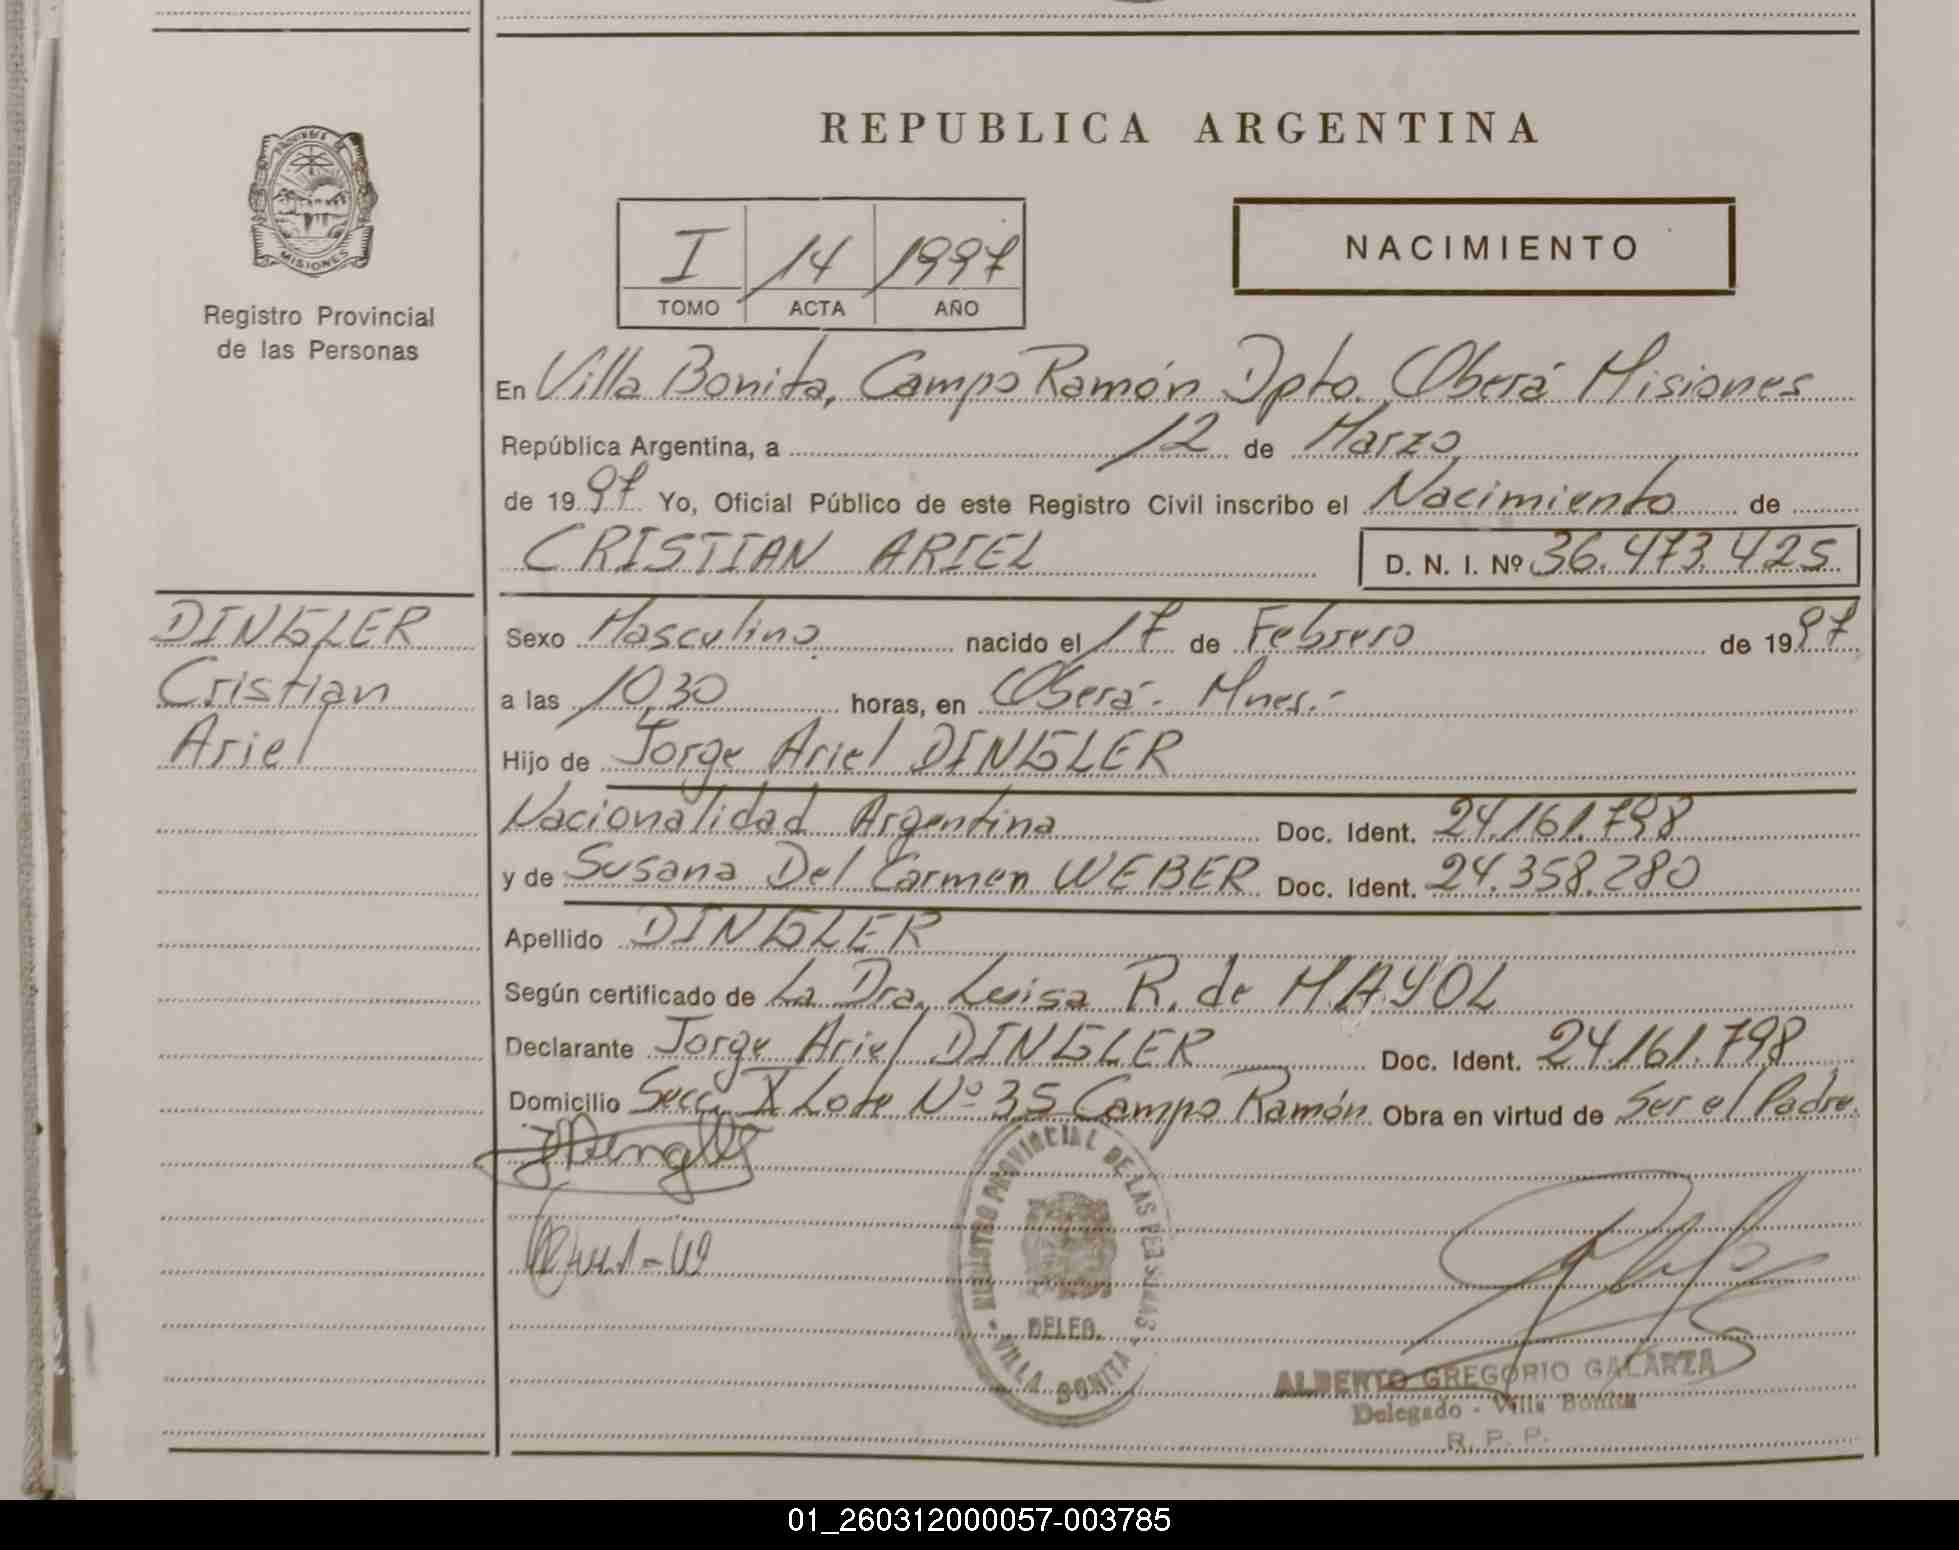 PROVINCIA DE
MISIONES
Registro Provincial
de las Personas
DINGLER
Cristian
Ariel
REPUBLICA ARGENTINA
I 14 1997
TOMO ACTA AÑO
NACIMIENTO
En Villa Bonita, Campo Ramón Dpto. Oberá Misiones
República Argentina, a 12 de Marzo
de 1997 Yo, Oficial Público de este Registro Civil inscribo el Nacimiento de
CRISTIAN ARIEL D. N. I. Nº 36.473.425
Sexo Masculino nacido el 17 de Febrero de 1997
a las 10,30 horas, en Oberá - Mnes.-
Hijo de Jorge Ariel DINGLER
Nacionalidad Argentina Doc. Ident. 24.161.798
y de Susana Del Carmen WEBER Doc. Ident. 24.358.280
Apellido DINGLER
Según certificado de La Dra. Luisa R. de MAYOL
Declarante Jorge Ariel DINGLER Doc. Ident. 24.161.798
Domicilio Secc. X Lote Nº 35 Campo Ramón Obra en virtud de Ser el Padre.
REGISTRO PROVINCIAL DE LAS PERSONAS
DELEG.
VILLA BONITA
ALBERTO GREGORIO GALARZA
Delegado - Villa Bonita
R. P. P.
01_260312000057-003785